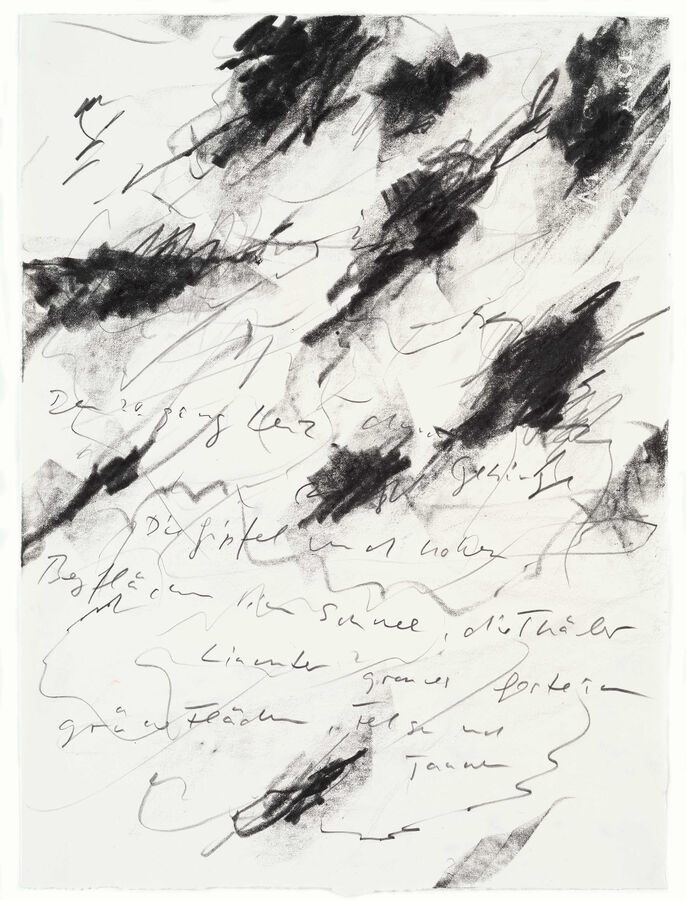 Den 20. ging Lenz durch
Gebirg
Die Gipfel und hohen
Bergflächen im Schnee, die Thäler
hinunter graues Gestein
grüne Flächen, Felsen und
Tannen